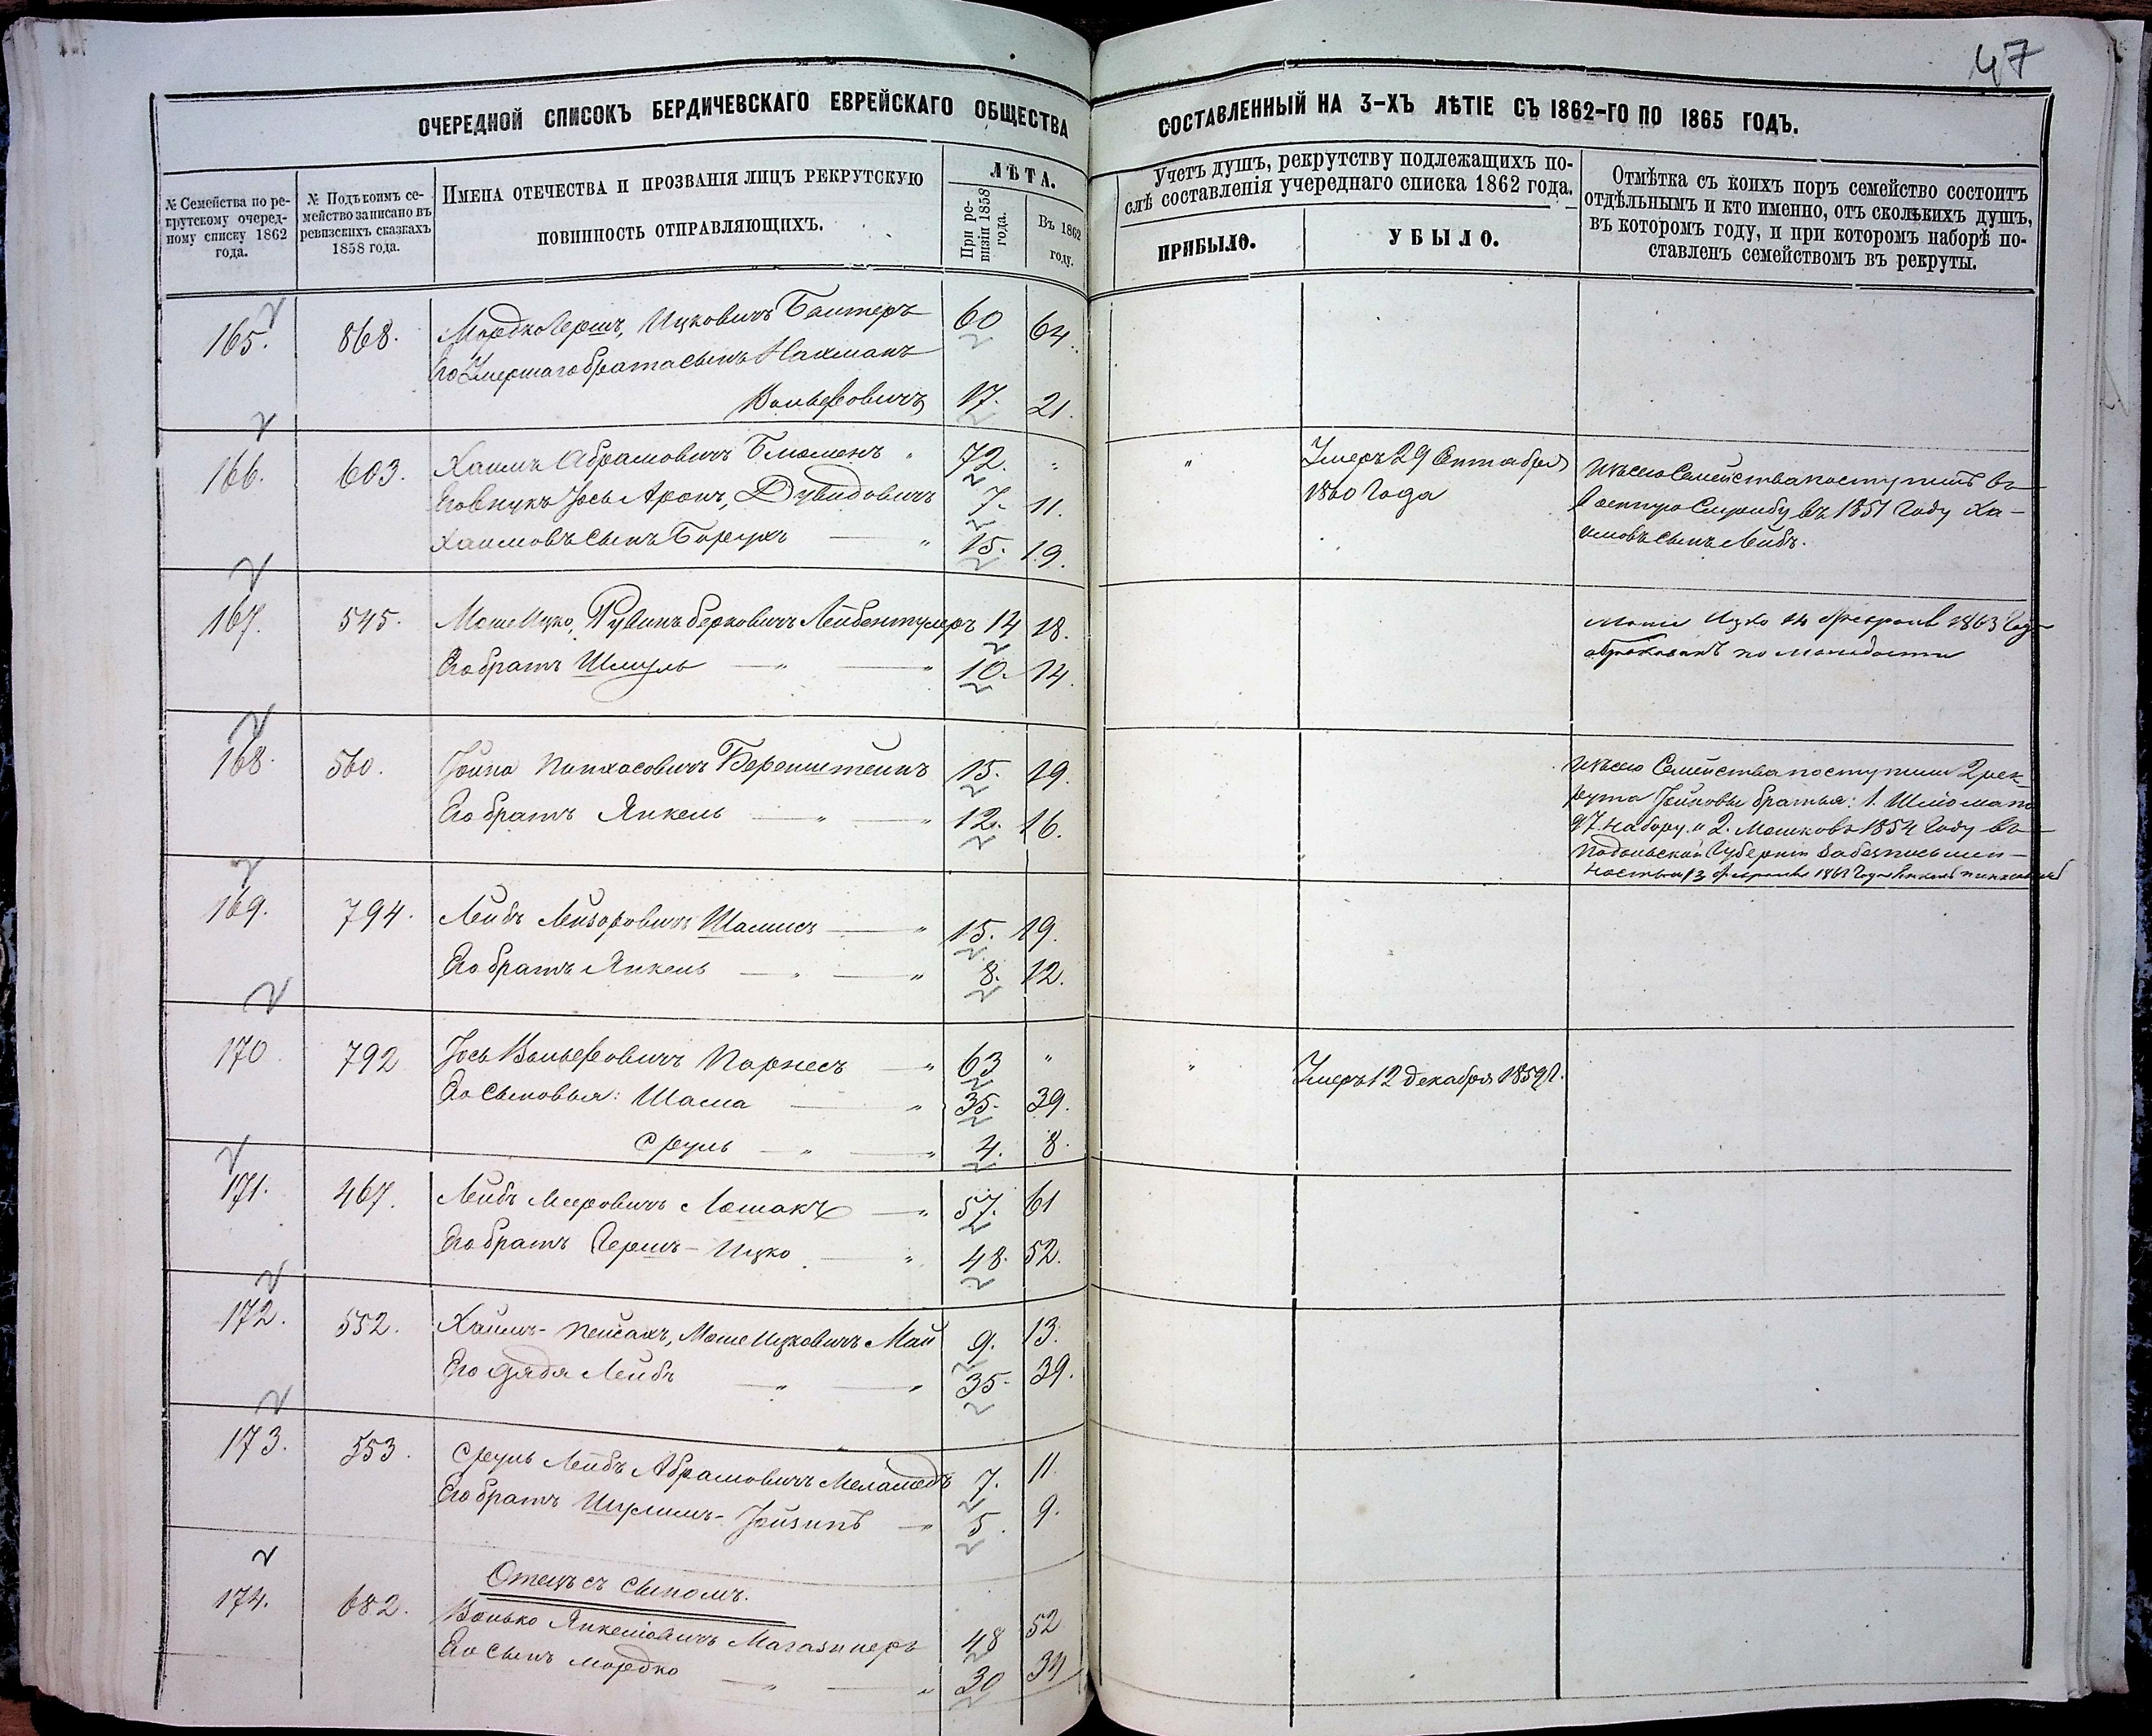 47
ОЧЕРЕДНОЙ СПИСОКЪ БЕРДИЧЕВСКАГО ЕВРЕЙСКАГО ОБЩЕСТВА СОСТАВЛЕННЫЙ НА 3-ХЪ ЛѢТІЕ СЪ 1862-ГО ПО 1865 ГОДЪ.
№ Семейства по ре-
крутскому очеред-
ному списку 1862
года.
№ Подъ коимъ се-
мейство записано въ
ревизскихъ сказкахъ
1858 года.
ИМЕНА ОТЕЧЕСТВА И ПРОЗВАНІЯ ЛИЦЪ РЕКРУТСКУЮ
ПОВИННОСТЬ ОТПРАВЛЯЮЩИХЪ.
ЛѢТА.
При ре-
визіи 1858
года.
Въ 1862
году.
Учетъ душъ, рекрутству подлежащихъ по-
слѣ составленія учереднаго списка 1862 года.
ПРИБЫЛО.
УБЫЛО.
Отмѣтка съ коихъ поръ семейство состоитъ
отдѣльнымъ и кто именно, отъ сколькихъ душъ,
въ которомъ году, и при которомъ наборѣ по-
ставленъ семействомъ въ рекруты.
165. 868. Мордко Гершъ, Ицковичъ Бантеръ 60 64.
Его Умершаго брата сынъ Нахманъ
Вольфовичъ 17. 21.
166. 603. Хаимъ Абрамовичъ Блюменъ " 72. " " Умеръ 29 Октября
1860 Года
Его внукъ Іось Аронъ, Дувидовичъ 7. 11.
Хаимовъ сынъ Борухъ — " 15. 19.
Изъ сего Семейства поступилъ въ
военную Службу въ 1851 Году Ха-
имовъ сынъ Лейбъ.
167. 545. Моше Ицко, Рувинъ Берковичъ Лейбентулеръ 14 18.
Его братъ Шмуль — " — " 10. 14.
Моше Ицко 14 Февраля 1863 Года
обракованъ по молодости
168. 560. Іойна Пинхасовичъ Беренштейнъ 15. 19.
Его братъ Янкель — " — " 12. 16.
Изъ сего Семейства поступили 2 рек-
рута Іойновы братья: 1. Шлома по
97 набору и 2. Мошко въ 1854 Году въ
Подольской Губерніи за безписьмен-
ностью 13 Февраля
169. 794. Лейбъ Лейзоровичъ Шамисъ — " 15. 19.
Его братъ Янкель — " — " 8. 12.
170 792 Іось Вольфовичъ Парнесъ — " 63 " " Умеръ 12 Декабря 1859 г.
Его сыновья: Шама — " 35. 39.
Сруль — " — " 4. 8.
171. 467. Лейбъ Мееровичъ Лошакъ — " 57. 61
Его братъ Гершъ-Ицко — " 48. 52.
172. 552. Хаимъ-Пейсахъ, Моше Ицковичъ Май 9. 13.
Его дядя Лейбъ — " — " 35. 39.
173. 553. Сруль Лейбъ Абрамовичъ Меламедъ 7. 11
Его братъ Шулимъ-Іойзипъ — " 5. 9.
Отецъ съ сыномъ.
174. 682. Волько Янкелювичъ Магазинеръ 48 52
Его сынъ Мордко — " — " 30 34